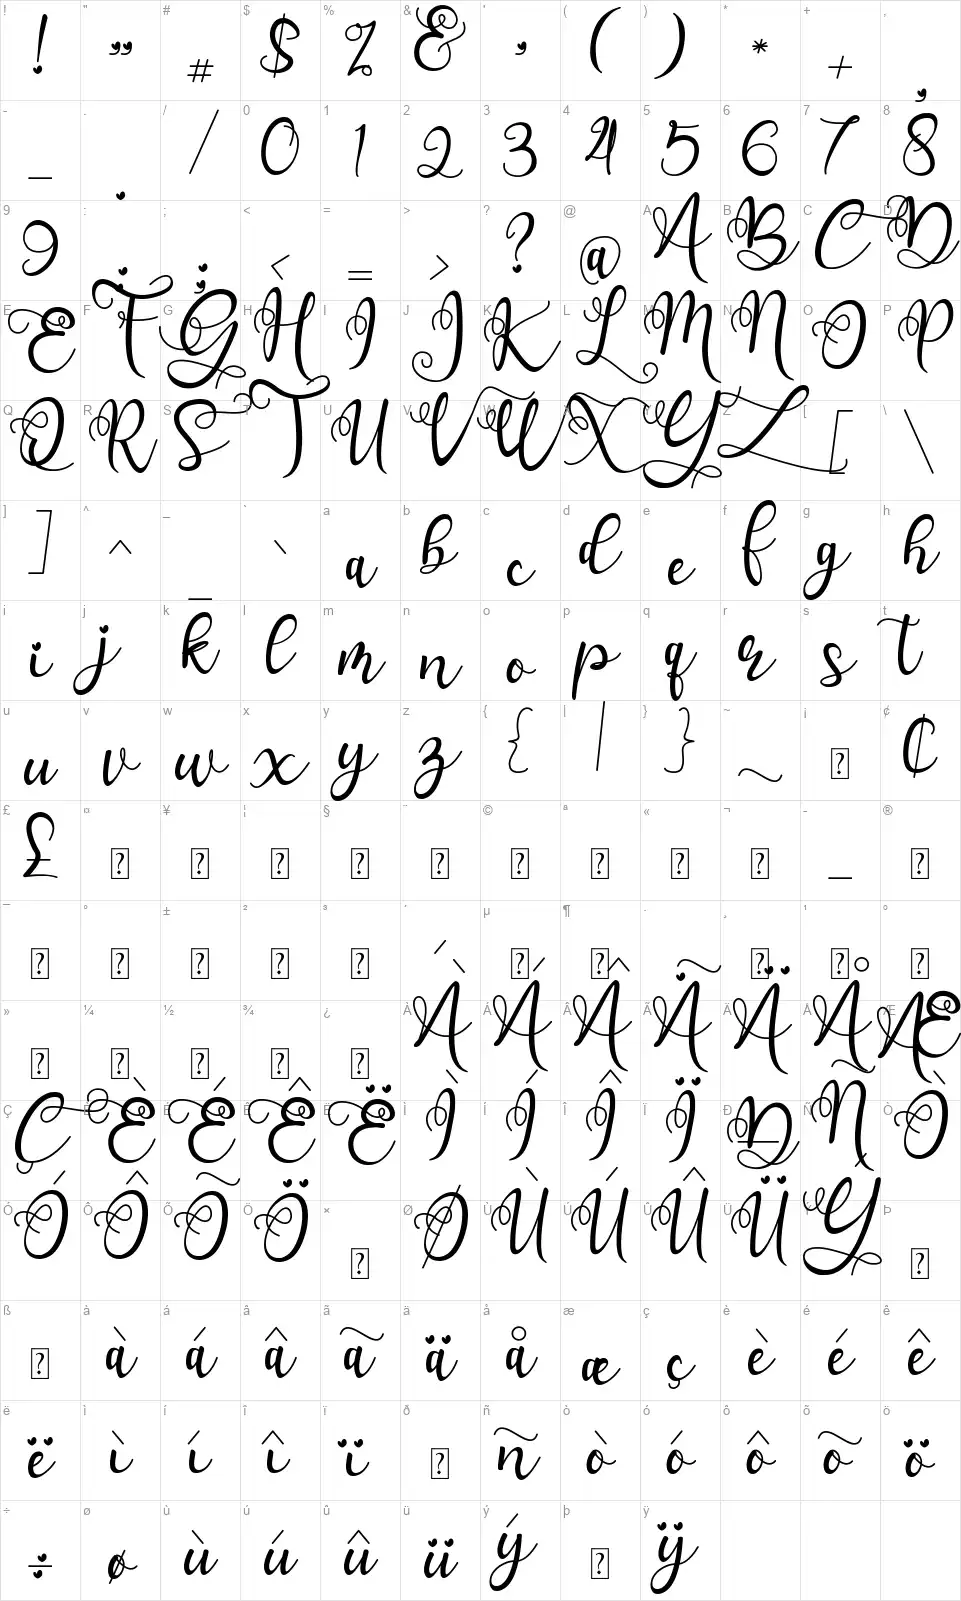 ! " # $ % & ' ( ) * + ,
! " # $ % & ' ( ) * + ,
- . / 0 1 2 3 4 5 6 7 8
- . / 0 1 2 3 4 5 6 7 8
9 : ; < = > ? @ A B C D
9 : ; < = > ? @ A B C D
E F G H I J K L M N O P
E F G H I J K L M N O P
Q R S T U V W X Y Z [ \
Q R S T U V W X Y Z [ \
] ^ _ ` a b c d e f g h
] ^ _ ` a b c d e f g h
i j k l m n o p q r s t
i j k l m n o p q r s t
u v w x y z { | } ~ ¡ ¢
u v w x y z { | } ~ ? ¢
£ ¤ ¥ ¦ § ¨ © ª « ¬ - ®
£ ? ? ? ? ? ? ? ? ? - ?
¯ ° ± ² ³ ´ µ ¶ · ¸ ¹ º
? ? ? ? ? ´ ? ? · ? ? ?
» ¼ ½ ¾ ¿ À Á Â Ã Ä Å Æ
? ? ? ? ? À Á Â Ã Ä Å Æ
Ç È É Ê Ë Ì Í Î Ï Ð Ñ Ò
Ç È É Ê Ë Ì Í Î Ï Ð Ñ Ò
Ó Ô Õ Ö × Ø Ù Ú Û Ü Ý Þ
Ó Ô Õ Ö ? Ø Ù Ú Û Ü Ý ?
ß à á â ã ä å æ ç è é ê
? à á â ã ä å æ ç è é ê
ë ì í î ï ð ñ ò ó ô õ ö
ë ì í î ï ? ñ ò ó ô õ ö
÷ ø ù ú û ü ý þ ÿ
÷ ø ù ú û ü ý ? ÿ